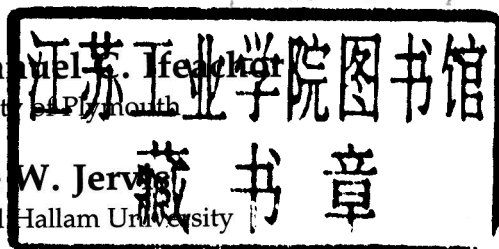 江苏工业学院图书馆
nuel C. Ifeachor
ty of Plymouth
藏书章
W. Jervis
l Hallam University